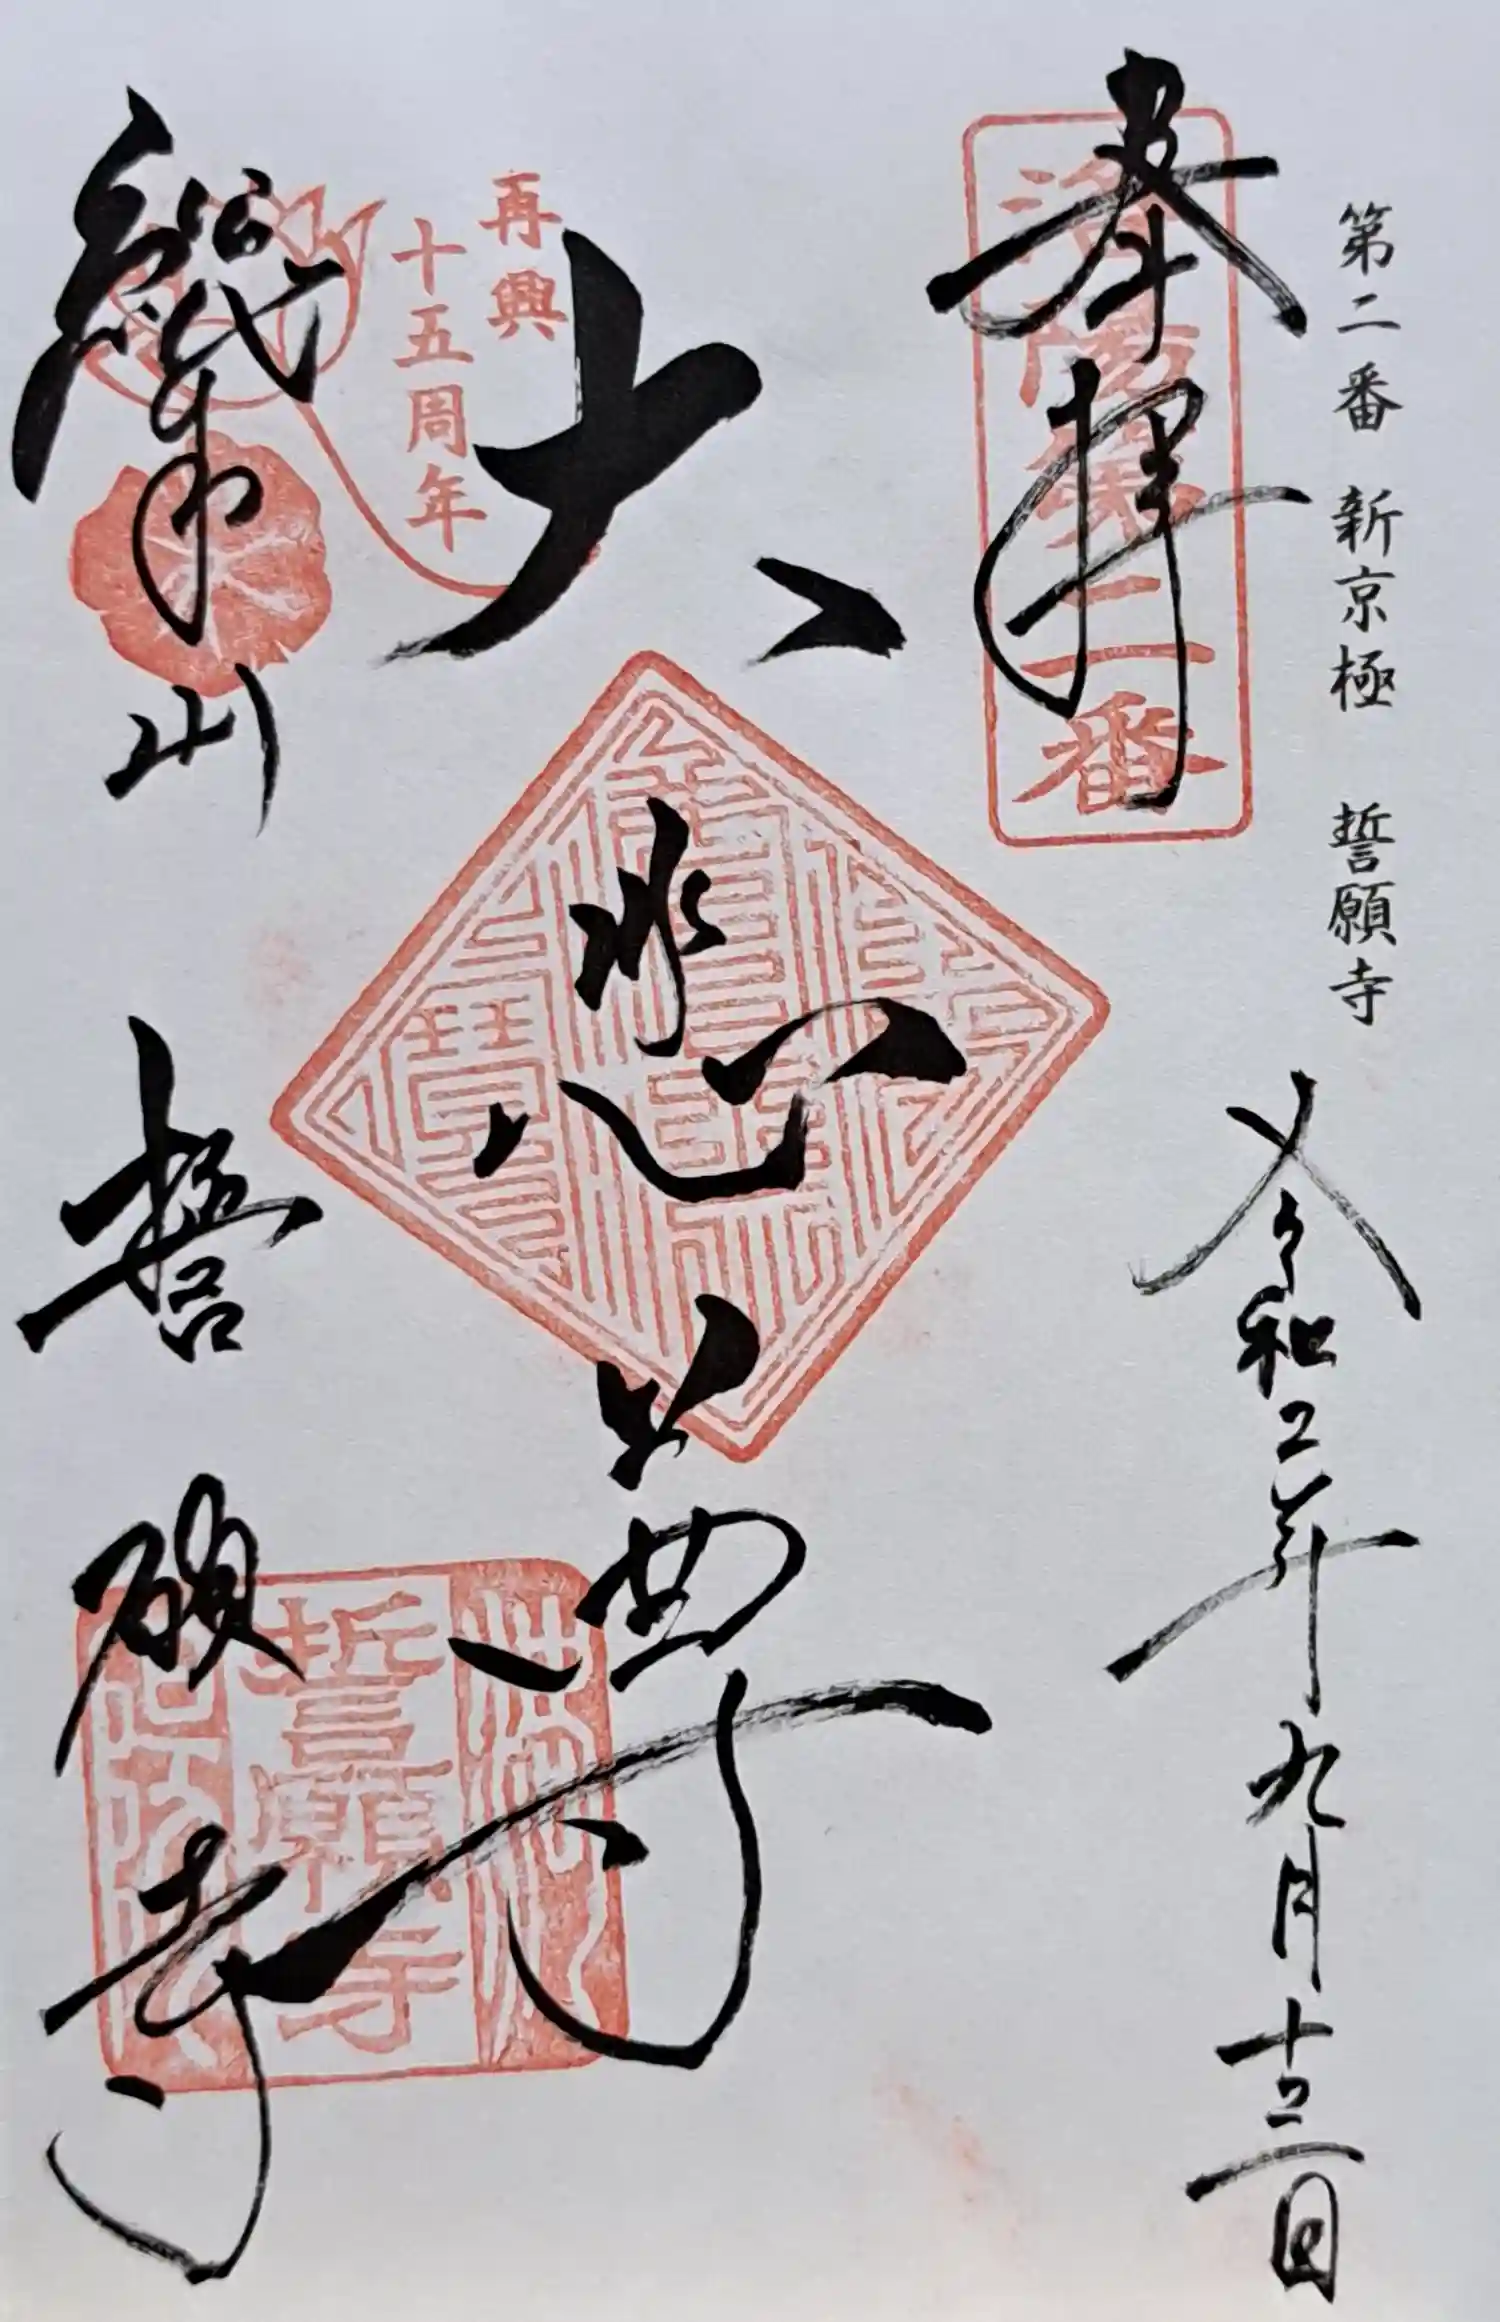 第二番 新京極 誓願寺
奉拝
洛陽第二番
令和二年九月十三日
大悲尊
再興
十五周年
山 誓願寺
誓願寺